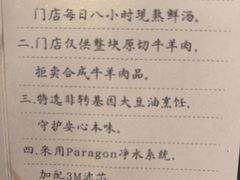 门店每日八小时现熬鲜汤。
二.门店仅供整块原切牛羊肉,
拒卖合成牛羊肉品。
三.特选非转基因大豆油烹饪,
守护安心本味。
四.采用Paragon净水系统,
加配3M滤芯